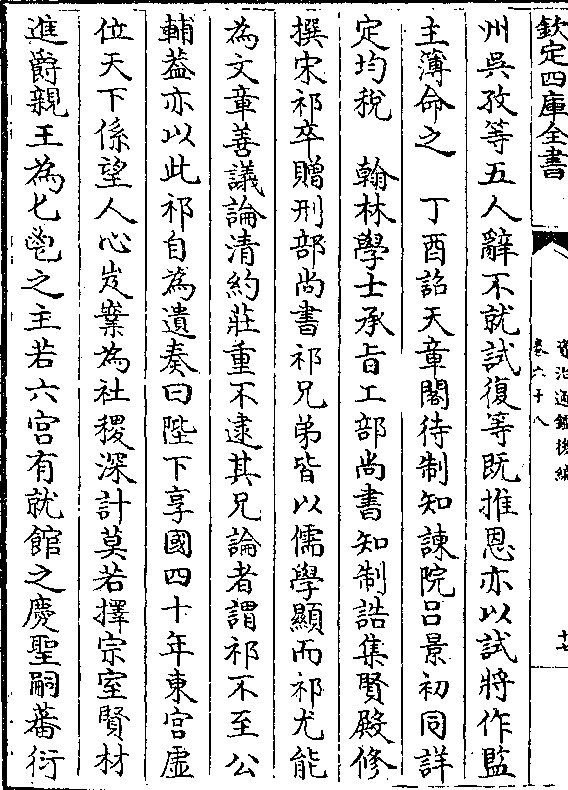 欽定四庫全書
資治通鑑後編
卷六十八
十七
州吳孜等五人辭不就試復等既推恩亦以試將作監
主簿命之　丁酉詔天章閣待制知諫院吕景初同詳
定均稅　翰林學士承旨工部尚書知制誥集賢殿修
撰宋祁卒贈刑部尚書祁兄弟皆以儒學顯而祁尤能
為文章善議論清約莊重不逮其兄論者謂祁不至公
輔葢亦以此祁自為遺奏曰陛下享國四十年東宫虛
位天下係望人心岌嶪為社稷深計莫若擇宗室賢材
進爵親王為匕鬯之主若六宫有就館之慶聖嗣蕃衍